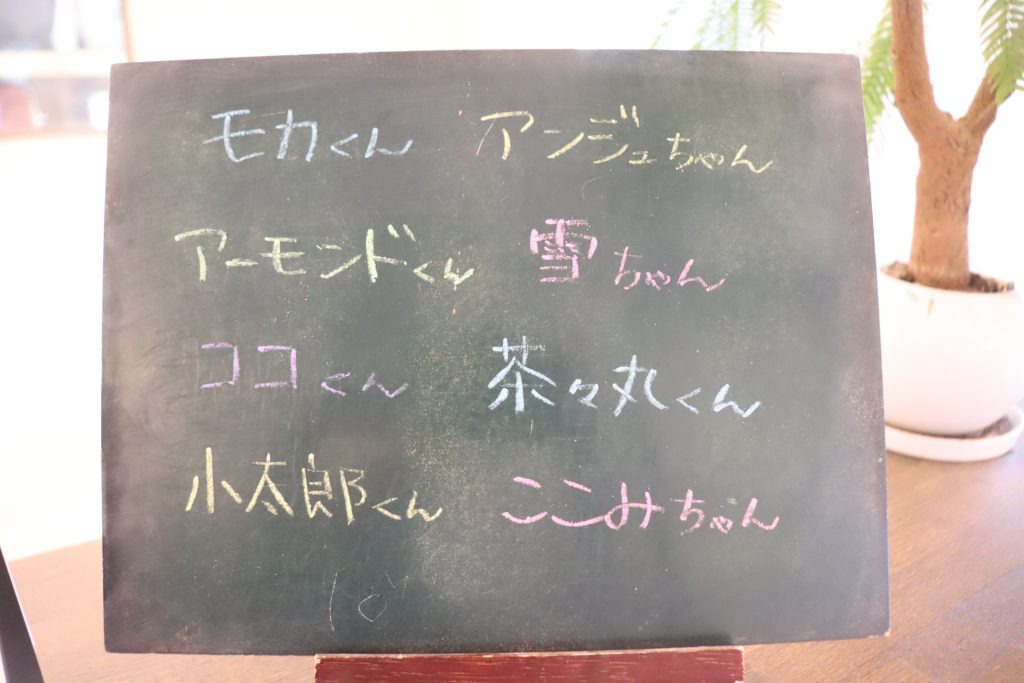 モカくん アンジュちゃん
アーモンドくん 雪ちゃん
ココくん 茶々丸くん
小太郎くん ここみちゃん